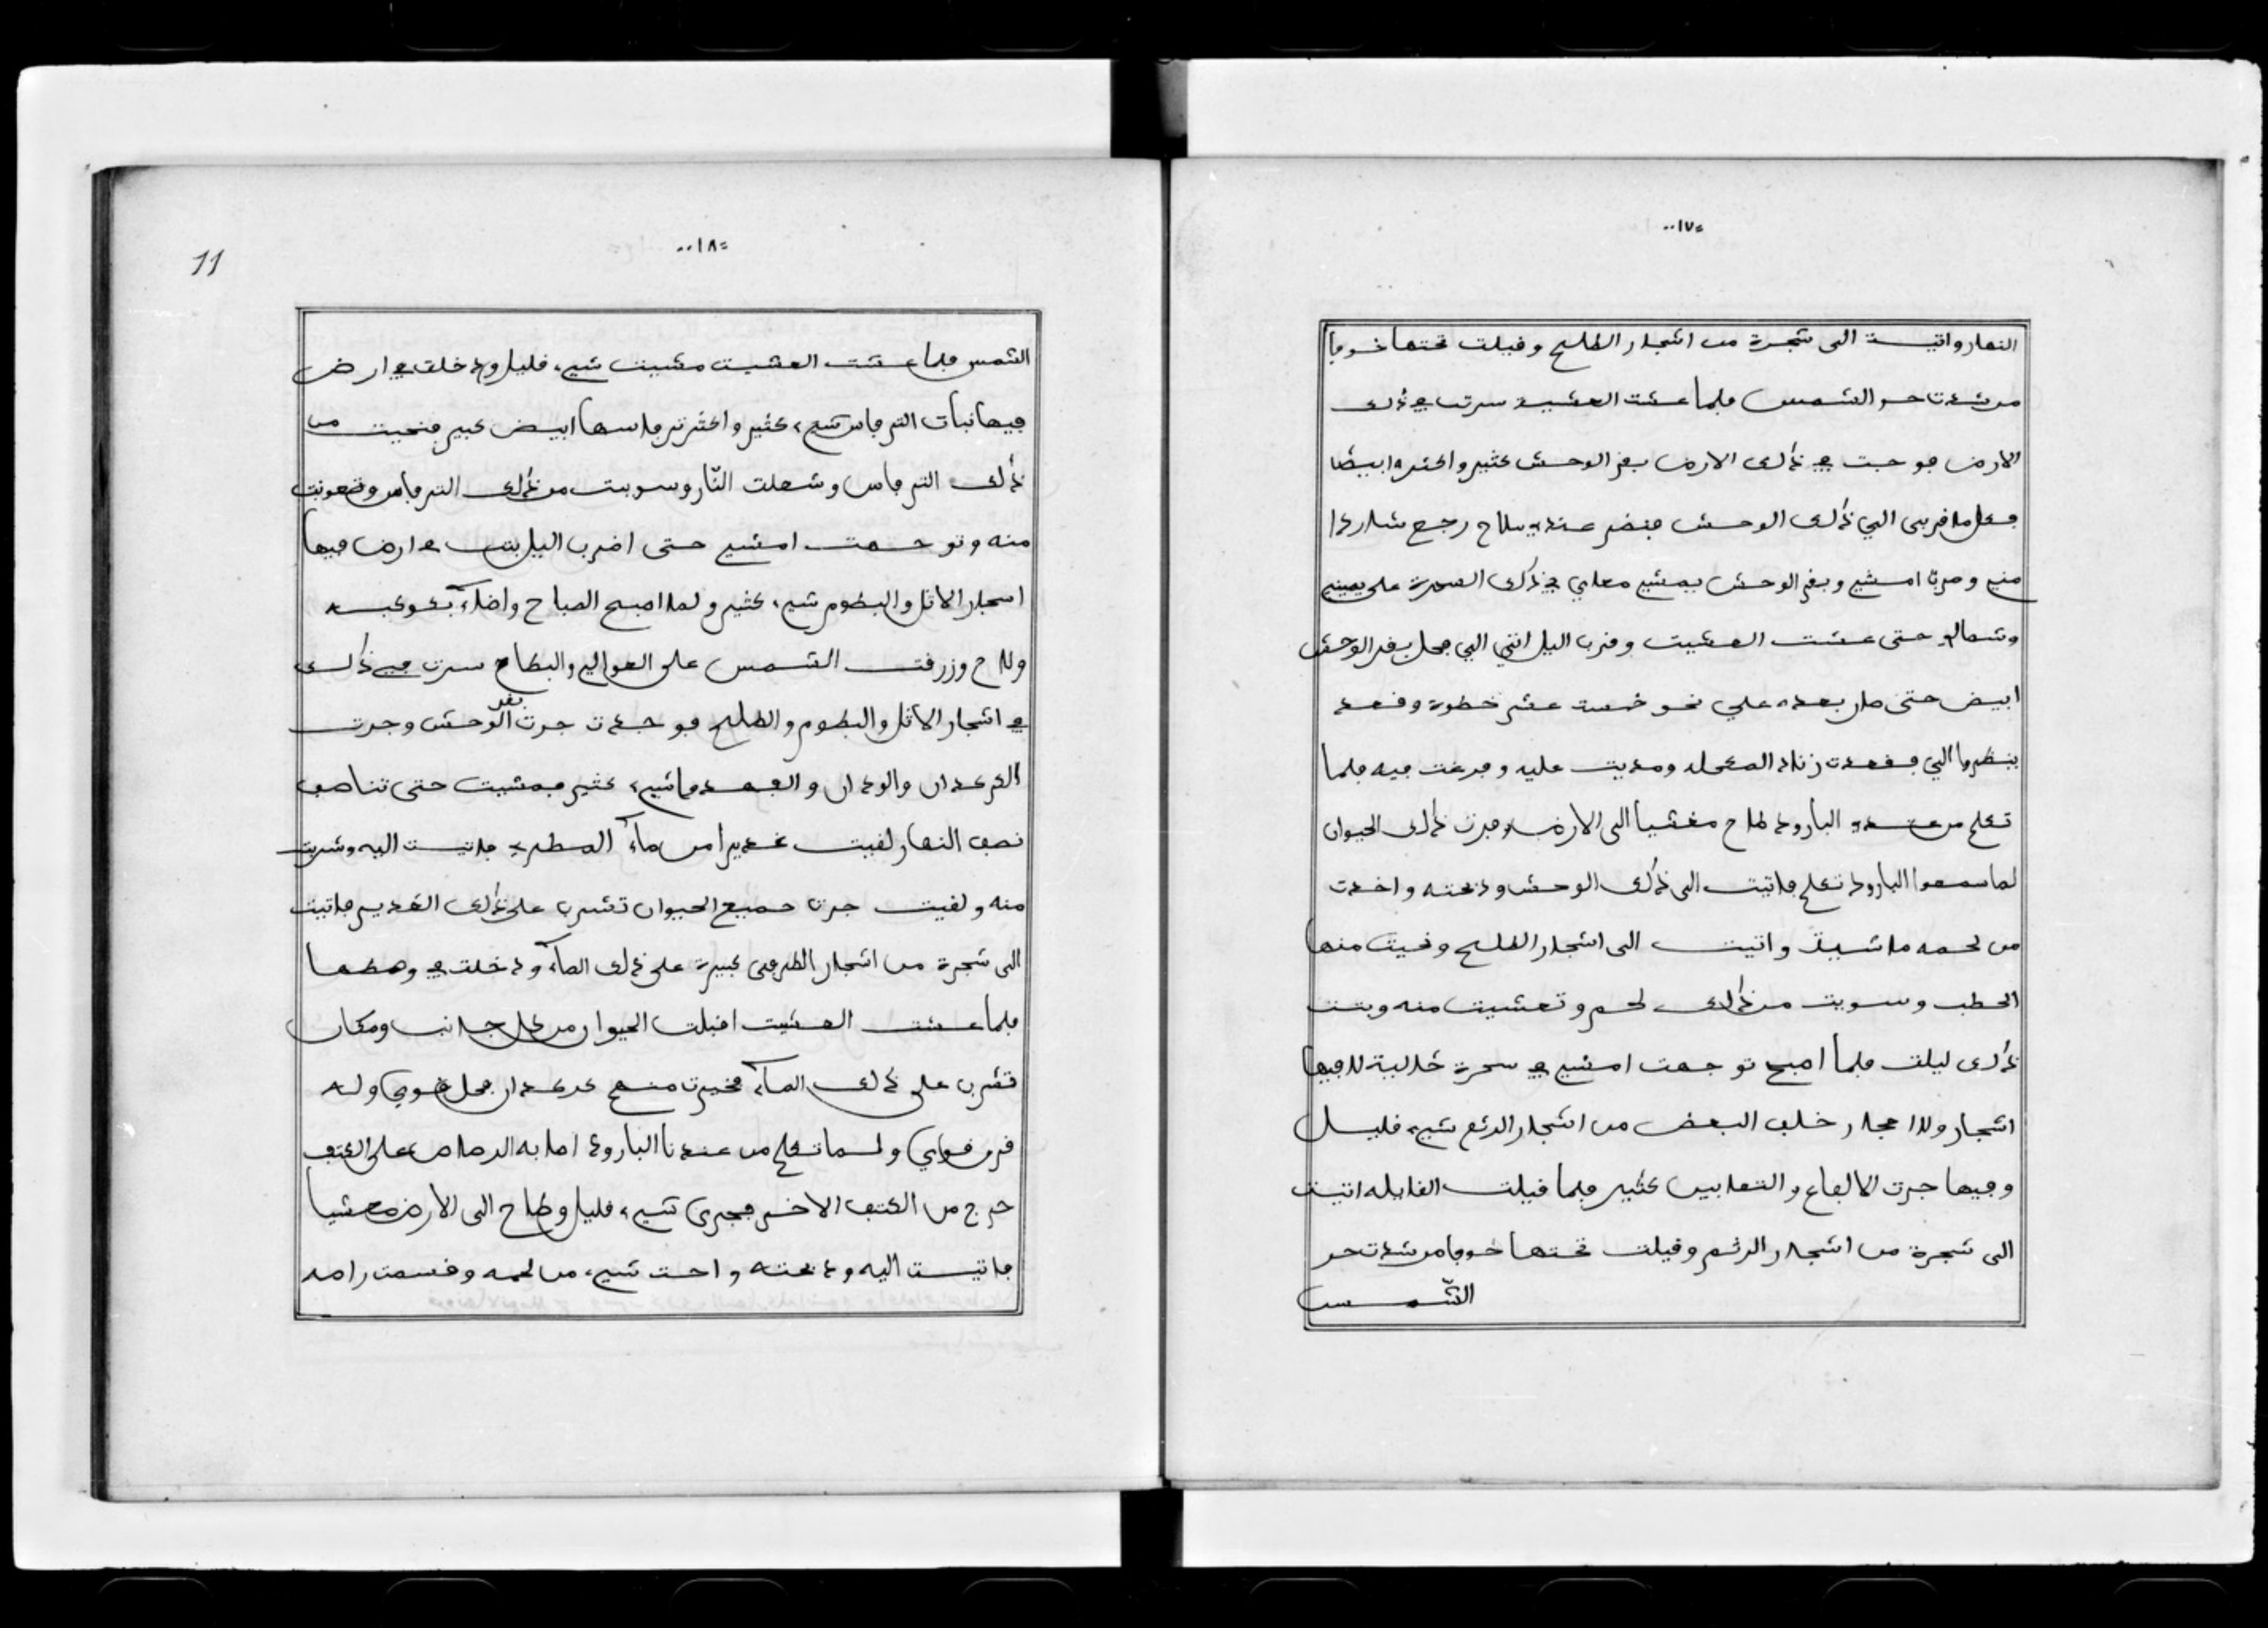 ١٧
النهار واتيت الى شجرة من اشجار الطلح وقيلت تحتها خوفا
من شدت حر الشمس فلما عشت العشية سرت في ذلك
الارض فوجبت في ذلك الارض بقر الوحش كثير واكثره ابيضا
فكل ما قربى الي ذلك الوحش فنضر عندي سلاح رجع شاردا
مني وصرت امشي وبقر الوحش يمشي معاي في ذلك الصحرة على يميني
وشمالي حتى عشت العشيت وقرب اليل اتني الي فحل بقر الوحش
ابيض حتى صار بعده علي نحو خمست عشر خطوة وقعد
ينظروا الي فقعدت زناد المكحله ومديت عليه وفرغت فيه فلما
تكلم من عندي البارود طاح مغشيا الى الارض وفرت ذلك الحيوان
لما سمعوا البارود تكلم فاتيت الى ذلك الوحش وذبحته واخدت
من لحمه ما نبيد واتيت الى اشجار الطلح وحيت منها
الحطب وسويت من ذلك لحم وتعشيت منه وبتت
ذلك ليلت فلما اصبح توجهت امشي في سحرة خالية لا فيها
اشجار ولا احجار خلف البعض من اشجار الرتم شيء قليل
وفيها جرت الالفاع والثعابين كثير فلما قيلت القايله اتيت
الى شجرة من اشجار الرتم وقيلت تحتها خوفا من شدت حر
الشمس
١٨
11
الشمس فلما عشت العشيت مشيت شيء قليل ودخلت في ارض
فيها نبات الترفاس شيء كثير واكثر ترفاسها ابيض كبير فنحيت من
ذلك الترفاس وشعلت النّار وسويت من ذلك الترفاس وقعونيت
منه وتوجهت امشي حتى اضرب اليل بتت في ارض فيها
اسجار الاتل والبطوم شيء كثير ولما اصبح الصباح واضاء بكوكبه
ولاح وزرقت الشمس على العوالي والبطاح سرت في ذلك
في اشجار الاتل والبطوم والطلح فوجدت جرت بقر الوحش وجرت
الكركدان والودان والفهد وما شيء كثير فمشيت حتى تناصف
نصف النهار لقيت غديرا من ماء المطر فاتيت اليه وشربت
منه ولقيت جرت جميع الحيوان تشرب على ذلك الغدير فاتيت
الى شجرة من اشجار الطرفى كبيرة على ذلك الماء ودخلت في وسطها
فلما عشت العشيت اقبلت الحيوان من كل جانب ومكان
تشرب على ذلك الماء فخيرت منهم كركدان فحل قوي وله
قرن قواي ولما تكلم من عندنا البارود اصابه الرصاص على الكتف
خرج من الكتف الاخر فجرى شيء قليل وطاح الى الارض مغشيا
فاتيت اليه وذبحته واحت شيء من لحمه وقسمت راسه